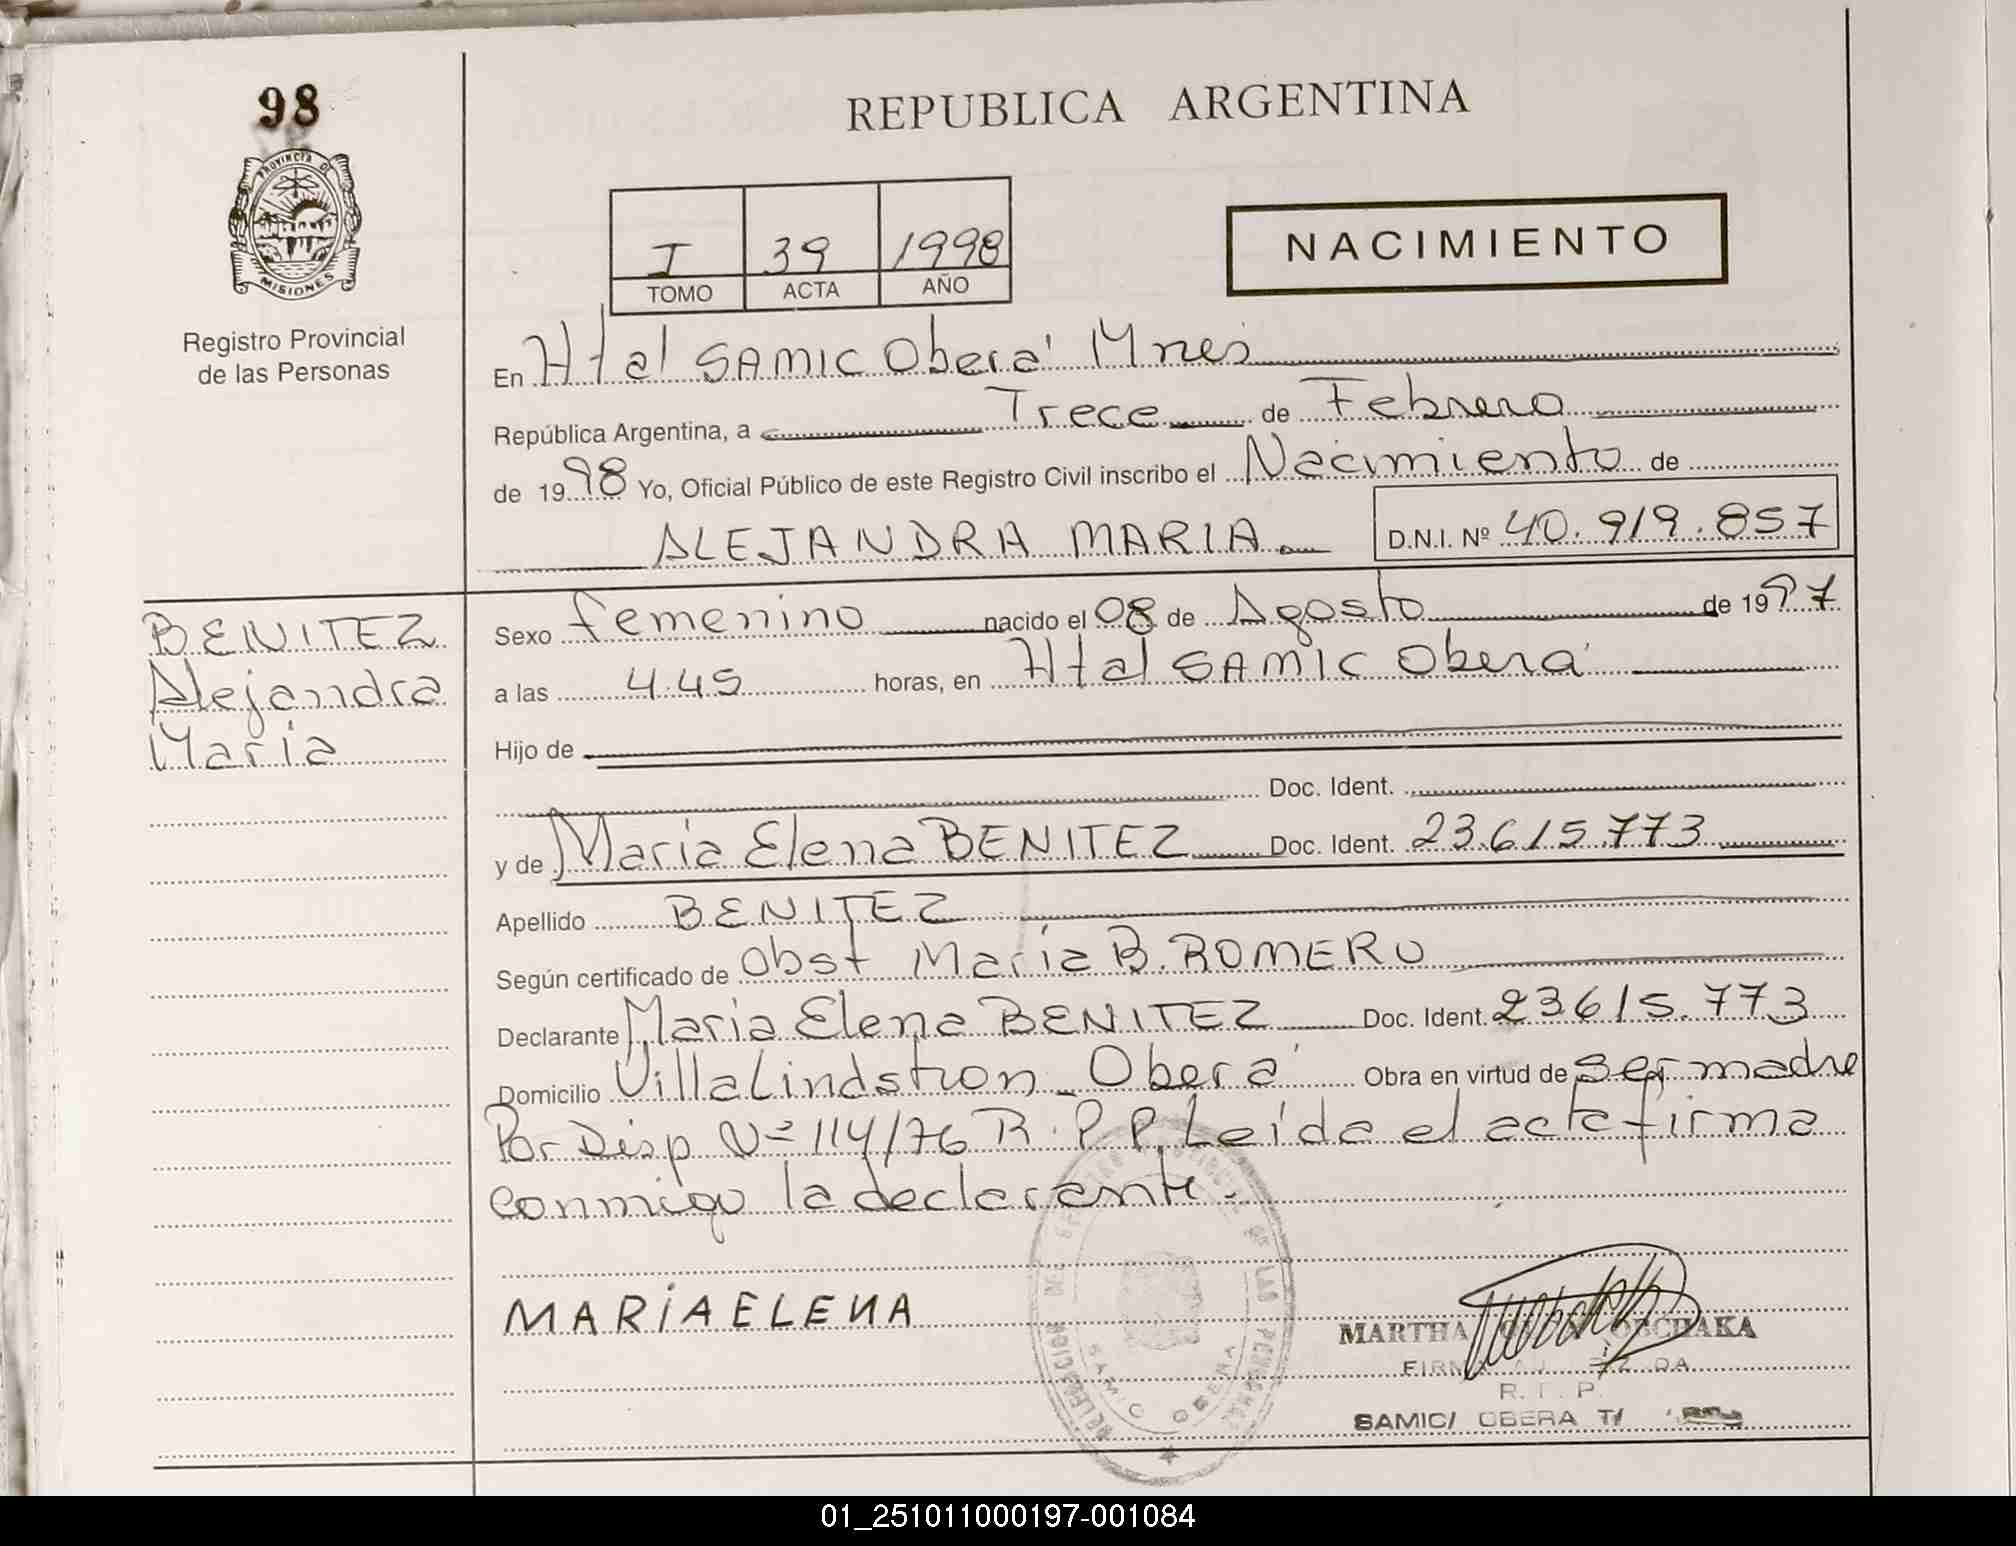 98
REPUBLICA ARGENTINA
PROVINCIA D
MISIONES
Registro Provincial
de las Personas
I 39 1998
TOMO ACTA AÑO
NACIMIENTO
En Htal SAMIC Oberá Mnes
República Argentina, a Trece de Febrero
de 1998 Yo, Oficial Público de este Registro Civil inscribo el Nacimiento de
ALEJANDRA MARIA D.N.I. Nº 40.919.857
BENITEZ
Alejandra
Maria
Sexo femenino nacido el 08 de Agosto de 1997
a las 4.45 horas, en Htal SAMIC Oberá
Hijo de
Doc. Ident.
y de Maria Elena BENITEZ Doc. Ident. 23.615.773
Apellido BENITEZ
Según certificado de Obst Maria B. ROMERO
Declarante Maria Elena BENITEZ Doc. Ident. 23615.773
Domicilio Villa Lindstron Oberá Obra en virtud de ser madre
Por Disp Nº 114/76 R.P.P. Leída el acta firma
conmigo la declarante.
MARIA ELENA
DELEGACION DEL DE LAS PERSONAS
SAMIC OBERA
MARTHA OBCHAKA
R. P.
SAMIC/ OBERA
01_251011000197-001084